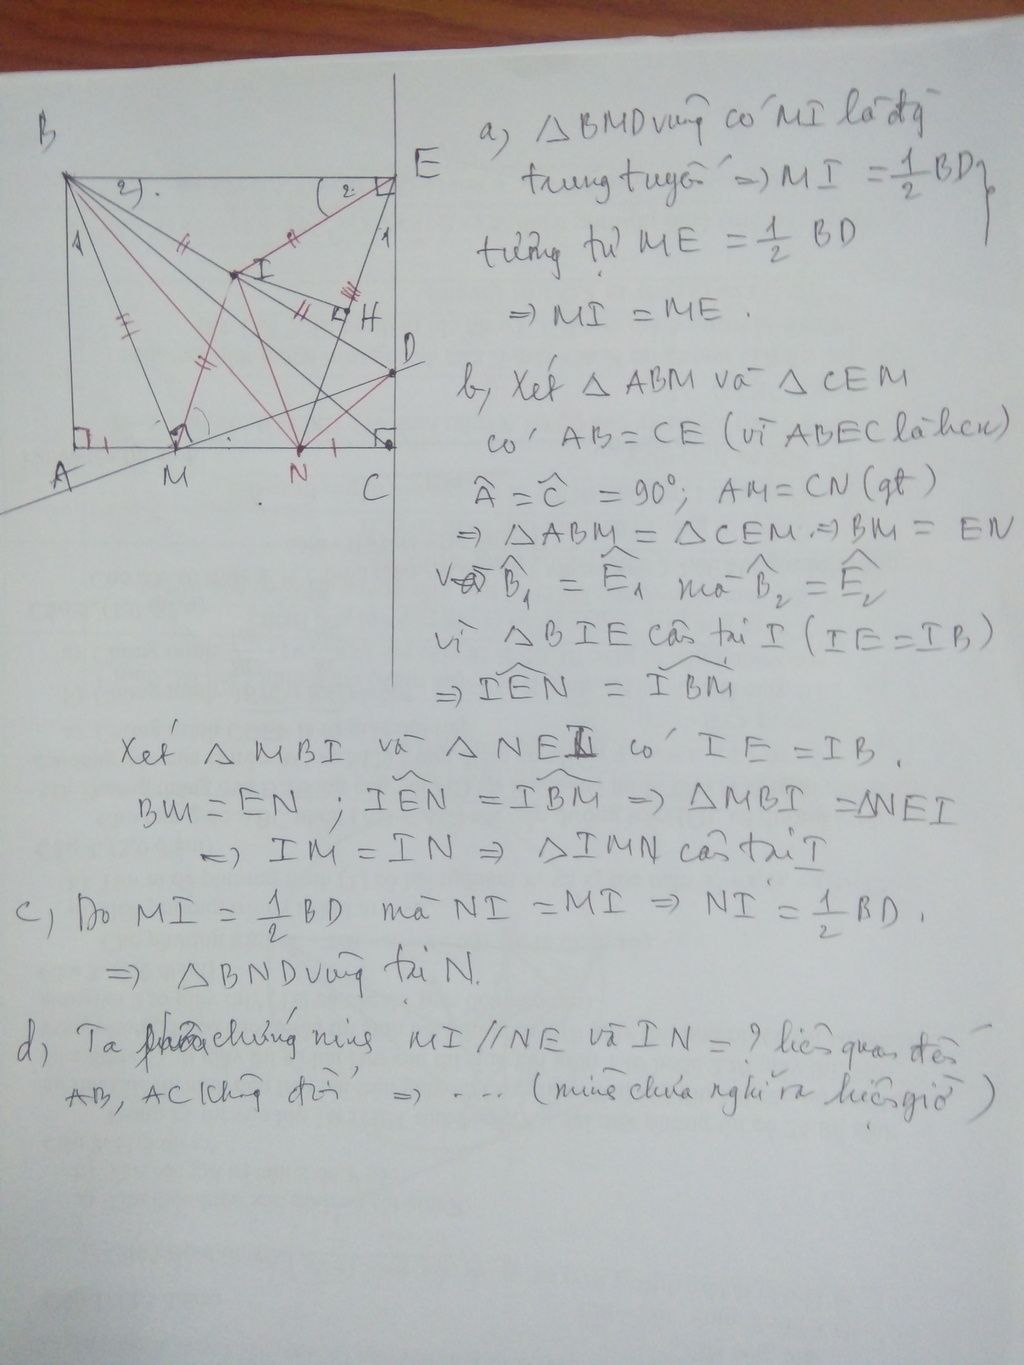 B
E
2
2
1
1
I
H
D
A
M
N
C
a, △ BMD vuông có MI là đg
trung tuyến => MI = 1/2 BD
tương tự ME = 1/2 BD
=> MI = ME .
b, Xét △ ABM và △ CEM
có AB = CE (vì ABEC là hcn)
Â = Ĉ = 90°; AM = CN (gt)
=> △ ABM = △ CEM => BM = EN
và B̂₁ = Ê₁ mà B̂₂ = Ê₂
vì △ BIE cân tại I ( IE = IB )
=> IÊN = IB̂M
Xét △ MBI và △ NEI có IE = IB ,
BM = EN ; IÊN = IB̂M => △MBI = △NEI
=> IM = IN => △IMN cân tại I
c, Do MI = 1/2 BD mà NI = MI => NI = 1/2 BD ,
=> △ BND vuông tại N.
d, Ta chứng minh MI // NE và IN = ? liên quan đến
AB, AC không đổi => .... (mình chưa nghĩ ra hiện giờ )